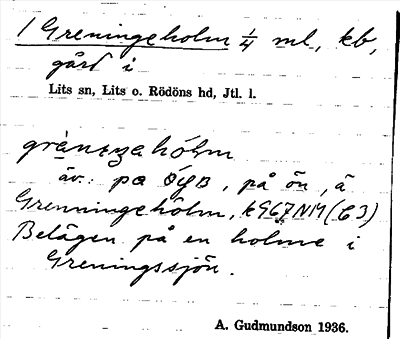 1 Greningeholm 1/4 ml, kb,
gård i
Lits sn, Lits o. Rödöns hd, Jtl. l.
äv.: på ön, ä
Grenningeholm, k967NM (C3)
Belägen på en holme i
Greningssjön.
A. Gudmundson 1936.